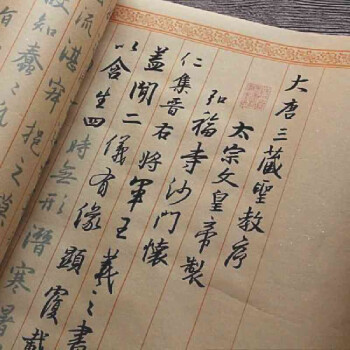 大唐三藏聖教序
太宗文皇帝製
弘福寺沙門懷
仁集晉右將軍王羲之書
蓋聞二儀有像顯覆載
以含生四
時無形潛寒暑
流湛寂挹之莫
故知蠢